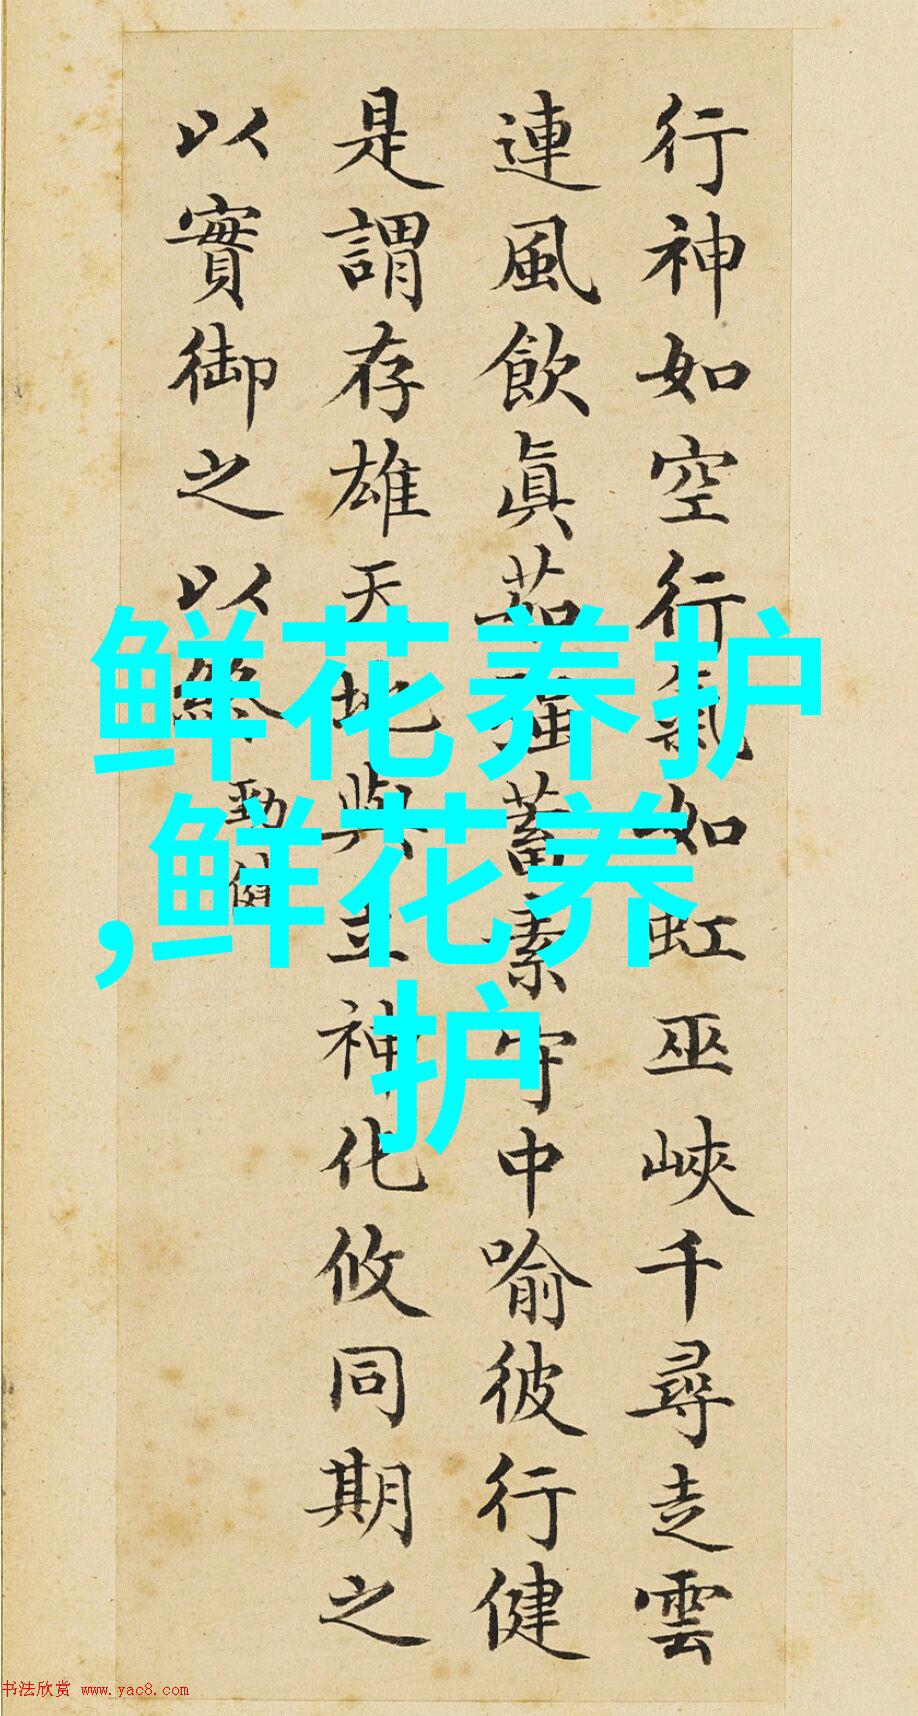 行神如空行氣如虹巫峽千尋走雲
連風飲眞茹強蓄素守中喻彼行健
是謂存雄天地與立神化攸同期之
以實御之以終勁健
鲜花养护
,鲜花养
护
书法欣赏 www.yac8.com